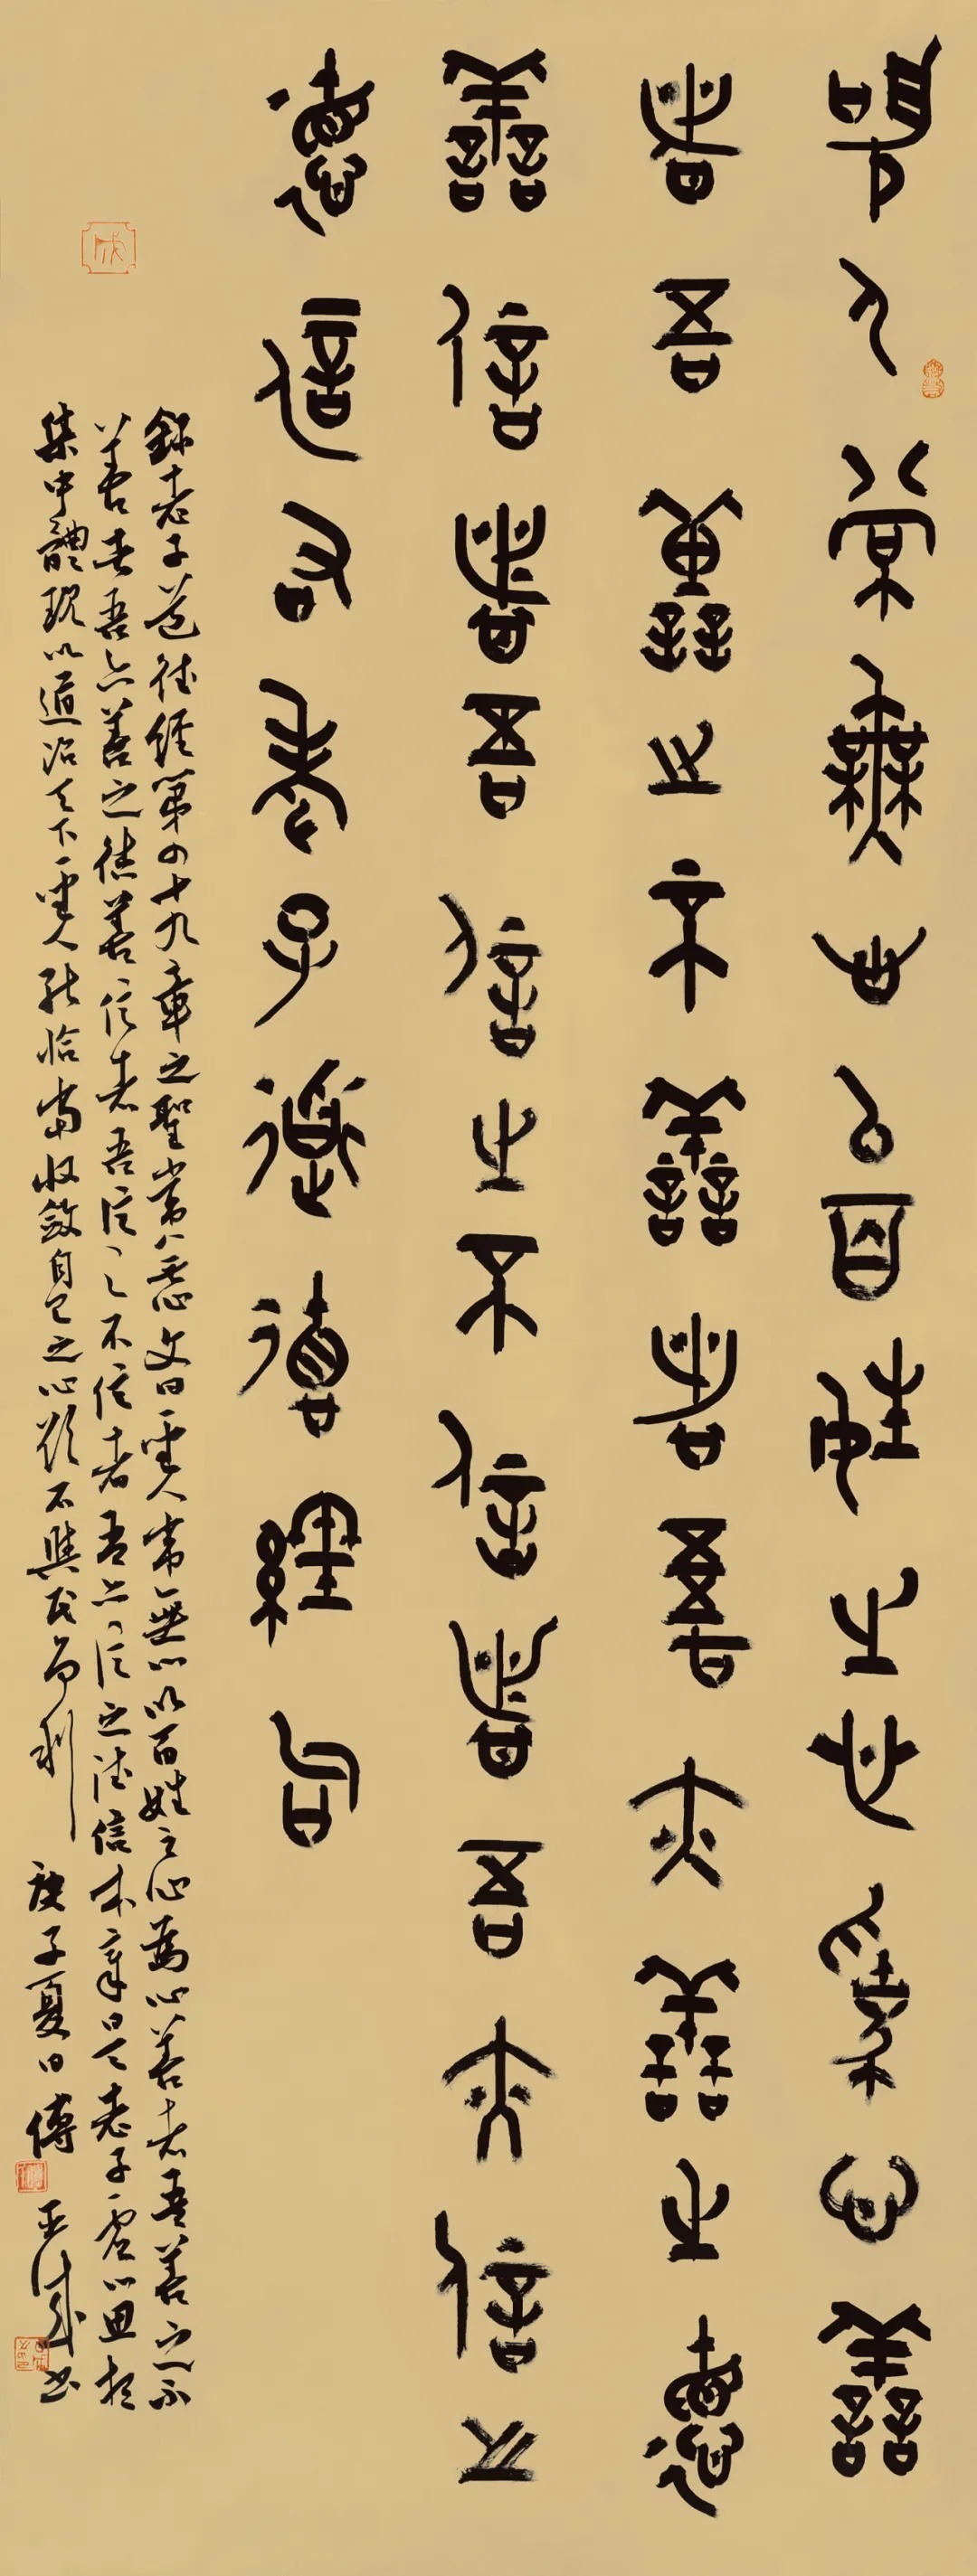 聖人常無心以百姓之心為心善
者吾善之不善者吾亦善之德
善信者吾信之不信者吾亦信之
德信右老子道德經句
錄老子道德經第四十九章之聖常無心文曰聖人常無心以百姓之心為心善者吾善之不
善者吾亦善之德善信者吾信之不信者吾亦信之德信本章是老子虛心思想
集中體現以道治天下聖人能恰當收斂自己之心欲不與民爭利 庚子夏日 傅亞成書